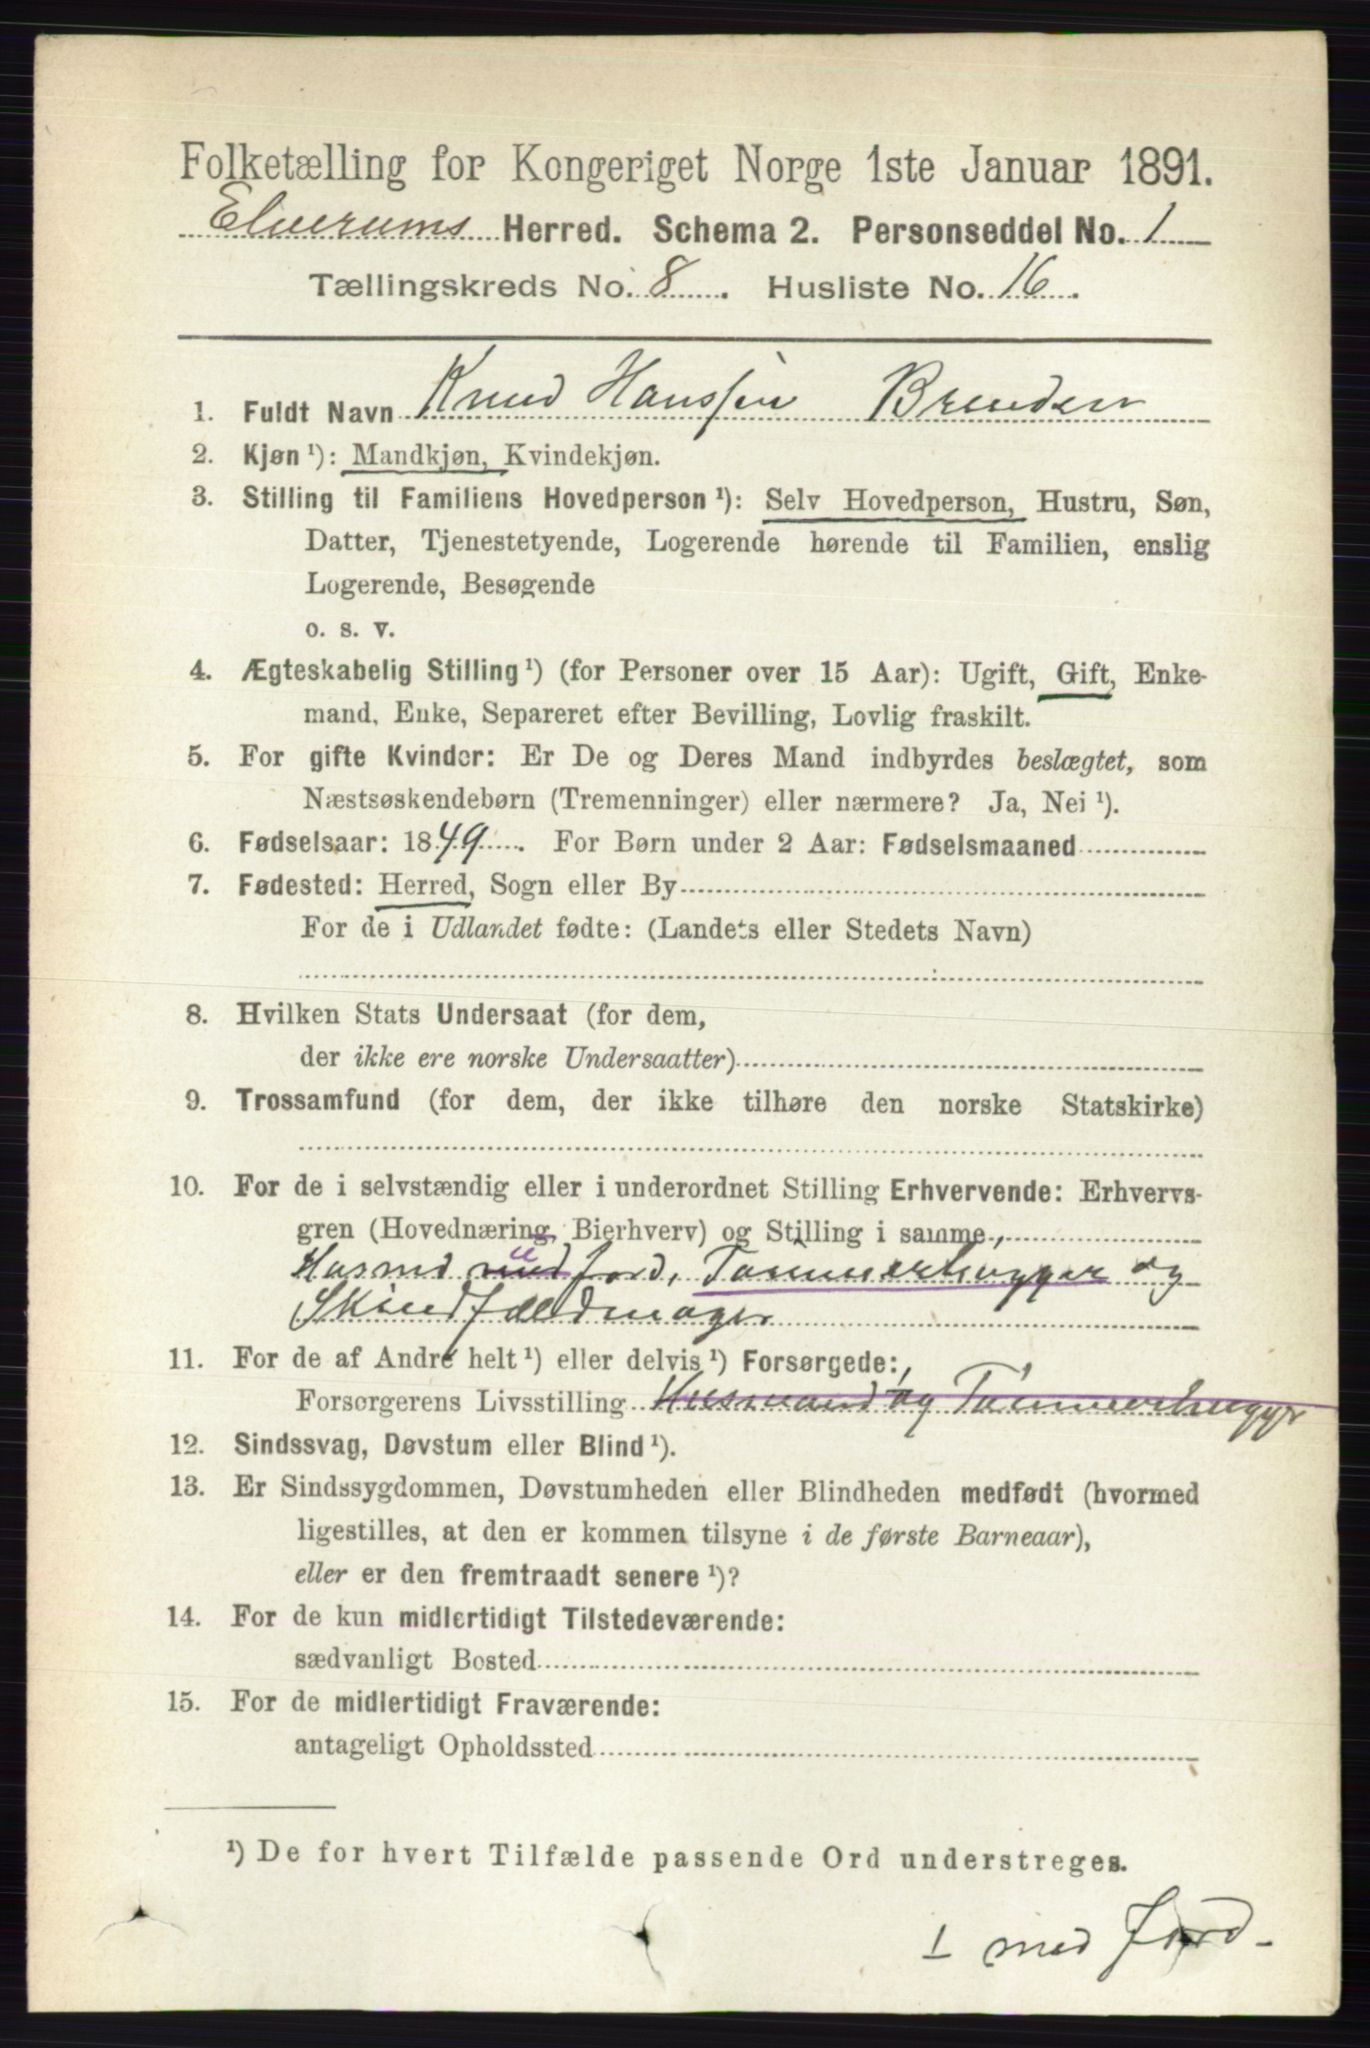 Folketælling for Kongeriget Norge 1ste Januar 1891.
Elverums Herred. Schema 2. Personseddel No. 1
Tællingskreds No. 8. Husliste No. 16.
1. Fuldt Navn Knud Hanssen Brenden
2. Kjøn ¹): Mandkjøn, Kvindekjøn.
3. Stilling til Familiens Hovedperson ¹): Selv Hovedperson, Hustru, Søn,
Datter, Tjenestetyende, Logerende hørende til Familien, enslig
Logerende, Besøgende
o. s. v.
4. Ægteskabelig Stilling ¹) (for Personer over 15 Aar): Ugift, Gift, Enke-
mand, Enke, Separeret efter Bevilling, Lovlig fraskilt.
5. For gifte Kvinder: Er De og Deres Mand indbyrdes beslægtet, som
Næstsøskendebørn (Tremenninger) eller nærmere? Ja, Nei ¹).
6. Fødselsaar: 1849. For Børn under 2 Aar: Fødselsmaaned
7. Fødested: Herred, Sogn eller By
For de i Udlandet fødte: (Landets eller Stedets Navn)
8. Hvilken Stats Undersaat (for dem,
der ikke ere norske Undersaatter)
9. Trossamfund (for dem, der ikke tilhøre den norske Statskirke)
10. For de i selvstændig eller i underordnet Stilling Erhvervende: Erhvervs-
gren (Hovednæring, Bierhverv) og Stilling i samme,
Husmd jord, Tømmerhugger og
Skindfældmager
11. For de af Andre helt ¹) eller delvis ¹) Forsørgede:,
Forsørgerens Livsstilling Husmand og Tømmerhugger
12. Sindssvag, Døvstum eller Blind ¹).
13. Er Sindssygdommen, Døvstumheden eller Blindheden medfødt (hvormed
ligestilles, at den er kommen tilsyne i de første Barneaar),
eller er den fremtraadt senere ¹)?
14. For de kun midlertidigt Tilstedeværende:
sædvanligt Bosted
15. For de midlertidigt Fraværende:
antageligt Opholdssted
¹) De for hvert Tilfælde passende Ord understreges.
⊥ med Jord